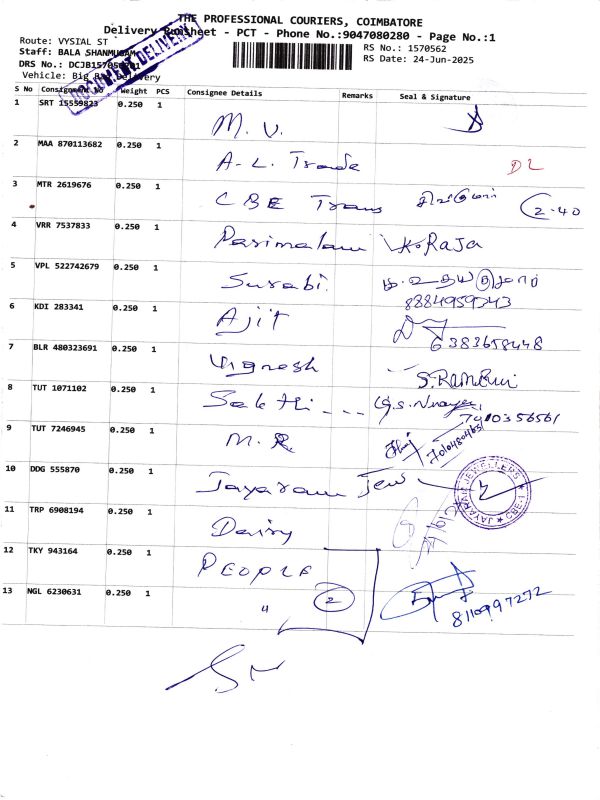 THE PROFESSIONAL COURIERS, COIMBATORE
Delivery Runsheet - PCT - Phone No.:9047080280 - Page No.:1
Route: VYSIAL ST
RS No.: 1570562
Staff: BALA SHANMUGAM
RS Date: 24-Jun-2025
DRS No.: 
Vehicle: Big Bag Delivery
DOCUMENT DELIVERY
S No Consignment No Weight PCS Consignee Details Remarks Seal & Signature
1 SRT 15559823 0.250 1 M. V.
2 MAA 870113682 0.250 1 A-L. Trade DL
3 MTR 2619676 0.250 1 CBE Trans 2.40
4 VRR 7537833 0.250 1 Parimalam K.RAJA
5 VPL 522742679 0.250 1 Surabi.
6 KDI 283341 0.250 1 Ajit 6383658448
7 BLR 480323691 0.250 1 Vignesh
8 TUT 1071102 0.250 1 Sakthi
9 TUT 7246945 0.250 1 M. R
10 DDG 555870 0.250 1 Jayaram Jew
JAYARAM JEWELLERS CBE-1
11 TRP 6908194 0.250 1 Dairy
12 TKY 943164 0.250 1 PEOPLE
13 NGL 6230631 0.250 1 " 2 8110997272